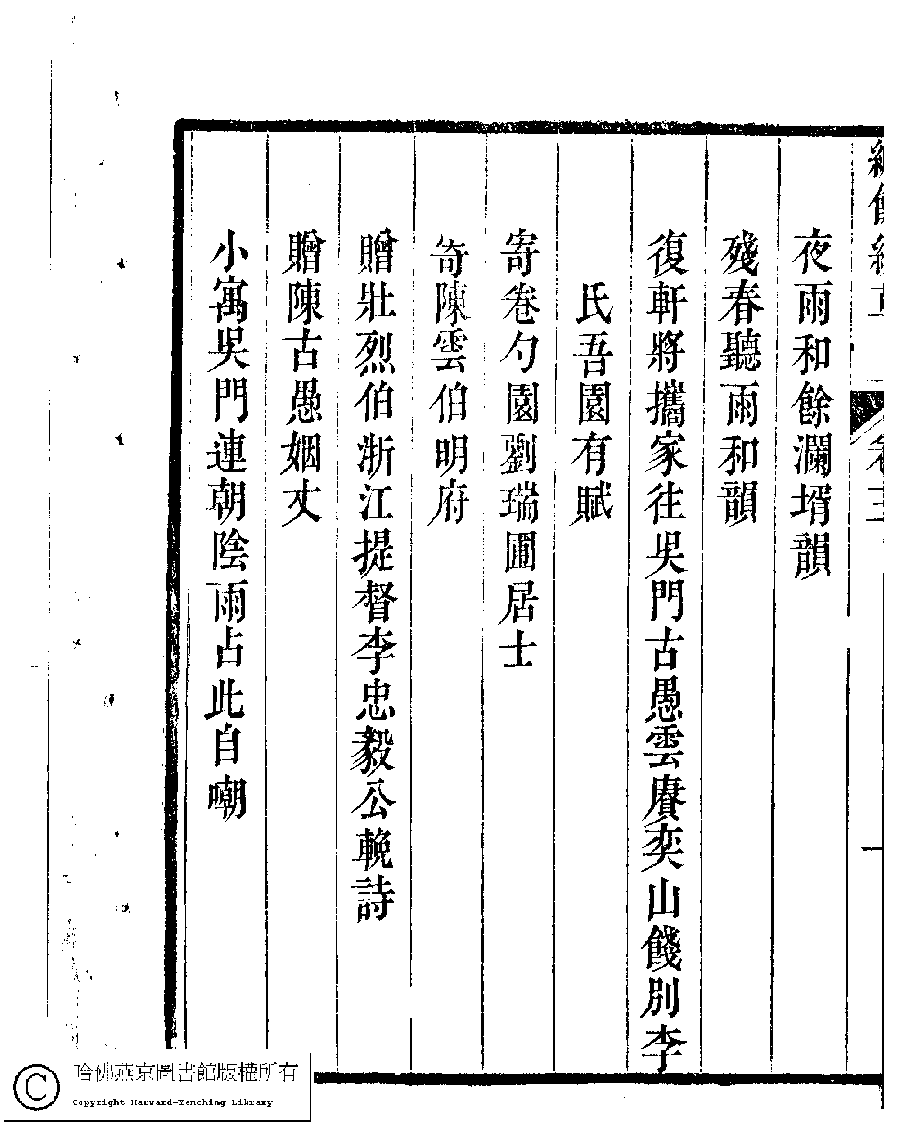 夜雨和餘瀾壻韻
殘春聽雨和韻
復軒將攜家往吳門古愚雲賡奕山餞別李
氏吾園有賦
寄卷勺園劉瑞圃居士
寄陳雲伯明府
贈壯烈伯浙江提督李忠毅公輓詩
贈陳古愚姻丈
小寓吳門連朝陰雨占此自嘲
哈佛燕京圖書館版權所有
Copyright Harvard-Yenching Library